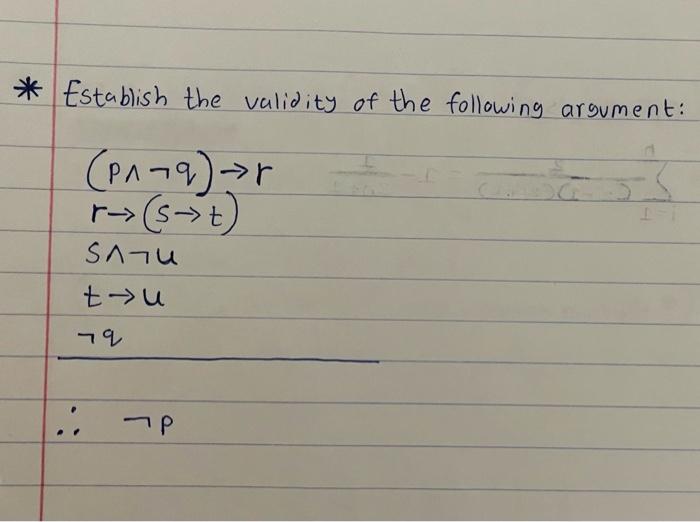 * Establish the validity of the following argument:
(p∧¬q)→r
r→(s→t)
s∧¬u
t→u
¬q
∴ ¬p